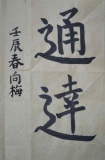 通達
壬辰春向梅